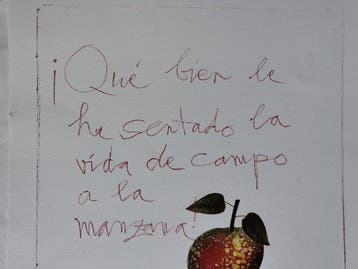 ¡Qué bien le
ha sentado la
vida de campo
a la
manzana!